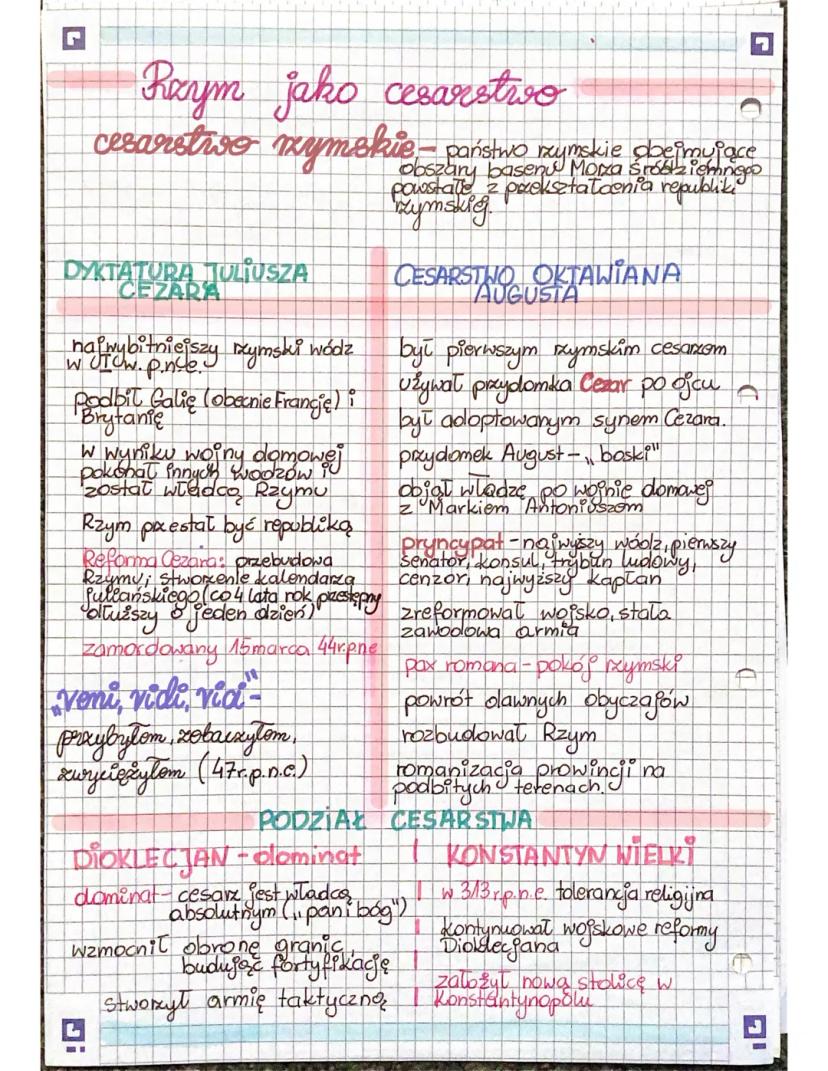 Rzym jako cesarstwo
cesarstwo rzymskie - państwo rzymskie obejmujące
obszary basenu Morza śródziemnego
powstałe z przekształcenia republiki
rzymskiej.
DYKTATURA JULIUSZA
CEZARA
najwybitniejszy rzymski wódz
w w. p.n.e.
podbił Galię (obecnie Francję) i
Brytanię
w wyniku wojny domowej
pokonał innych wodzów i
został władcą Rzymu
Rzym przestał być republiką
Reforma Cezara: przebudowa
Rzymu; stworzenie kalendarza
juliańskiego (co 4 lata rok przestępny
dłuższy o jeden dzień)
zamordowany 15 marca 44r.pne
"veni, vidi, vici" -
przybyłem, zobaczyłem,
zwyciężyłem (47r.p.n.e.)
CESARSTWO OKTAWIANA
AUGUSTA
był pierwszym rzymskim cesarzem
używał przydomka Cezar po ojcu
był adoptowanym synem Cezara.
przydomek August - „boski"
objął władzę po wojnie domowej
z Markiem Antoniuszem
pryncypat - najwyższy wódz, pierwszy
senator, konsul, trybun ludowy,
cenzor, najwyższy kapłan
zreformował wojsko, stała
zawodowa armia
pax romana - pokój rzymski
powrót dawnych obyczajów
rozbudował Rzym
romanizacja prowincji na
podbitych terenach.
PODZIAŁ CESARSTWA
DIOKLECJAN - dominat
dominat - cesarz jest władcą
absolutnym („pan i bóg")
wzmocnił obronę granic,
budując fortyfikację
stworzył armię taktyczną
KONSTANTYN WIELKI
w 313 r.p.n.e. tolerancja religijna
kontynuował wojskowe reformy
Dioklecjana
założył nową stolicę w
Konstantynopolu